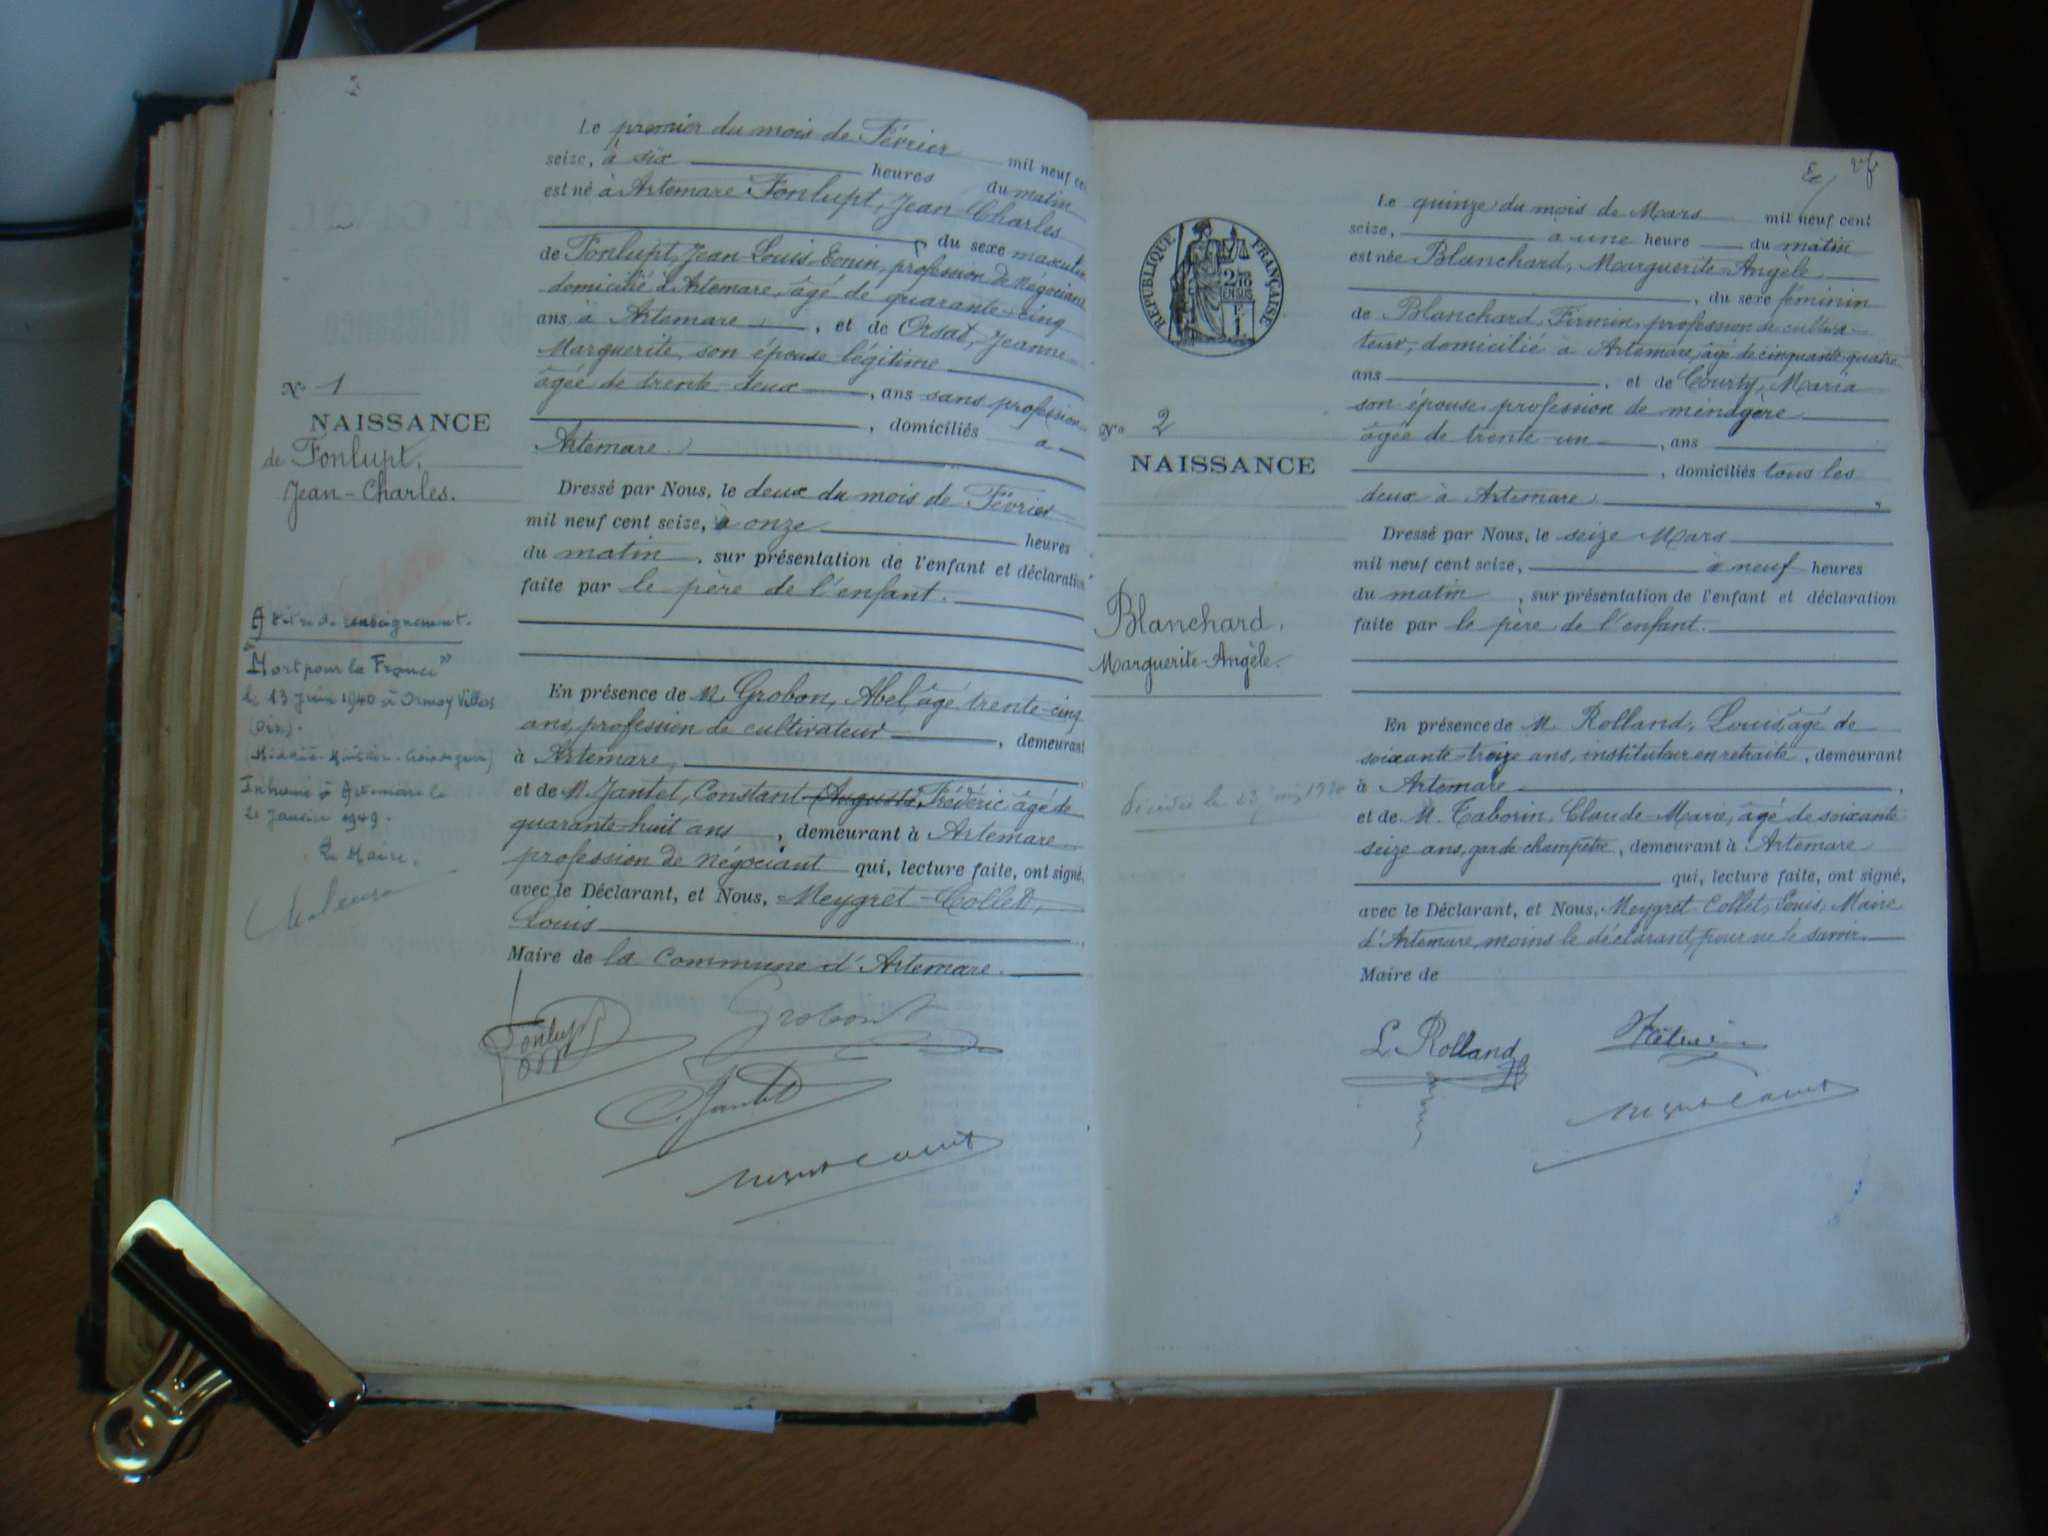 Le premier du mois de Février mil neuf cent
seize, à six heures du matin
est né à Artemare Fonlupt, Jean Charles
du sexe masculin
de Fonlupt, Jean-Louis profession de Négociant
domicilié à Artemare, âgé de quarante-cinq
ans à Artemare, et de Orsat, Jeanne
Marguerite, son épouse légitime
âgée de trente-deux, ans sans profession
, domiciliés à
Artemare.
N° 1
NAISSANCE
de Fonlupt,
Jean-Charles.
Dressé par Nous, le deux du mois de Février
mil neuf cent seize, à onze heures
du matin, sur présentation de l'enfant et déclaration
faite par le père de l'enfant.
A titre de renseignement.
"Mort pour la France"
le 13 Juin 1940 à Ormoy Villers
(Oise).
Inhumé à Artemare le
Janvier 1949.
Le Maire,
En présence de M. Grobon, Abel, âgé trente-cinq
ans, profession de cultivateur, demeurant
à Artemare,
et de M. Jantet, Constant Auguste, Frédéric âgé de
quarante-huit ans, demeurant à Artemare
profession de négociant qui, lecture faite, ont signé,
avec le Déclarant, et Nous, Meygret-Collet,
Louis
Maire de la commune d'Artemare.
Fonlupt
Grobon
C. Jantet
Meygret Collet
Le quinze du mois de Mars mil neuf cent
seize, à une heure du matin
est née Blanchard, Marguerite-Angèle
, du sexe féminin
de Blanchard, Firmin, profession de cultiva-
teur, domicilié à Artemare, âgé de cinquante-quatre
ans, et de Courty, Maria
son épouse, profession de ménagère
âgée de trente-un, ans
, domiciliés tous les
deux à Artemare
RÉPUBLIQUE FRANÇAISE
N° 2
NAISSANCE
Blanchard,
Marguerite-Angèle.
Dressé par Nous, le seize Mars
mil neuf cent seize, à neuf heures
du matin, sur présentation de l'enfant et déclaration
faite par le père de l'enfant.
En présence de M. Rolland, Louis, âgé de
soixante-treize ans, instituteur en retraite, demeurant
à Artemare
et de M. Taborin, Claude-Marie, âgé de soixante
seize ans, garde champêtre, demeurant à Artemare
qui, lecture faite, ont signé,
avec le Déclarant, et Nous, Meygret Collet, Louis, Maire
d'Artemare, moins le déclarant pour ne le savoir.
Maire de
L. Rolland
Meygret Collet